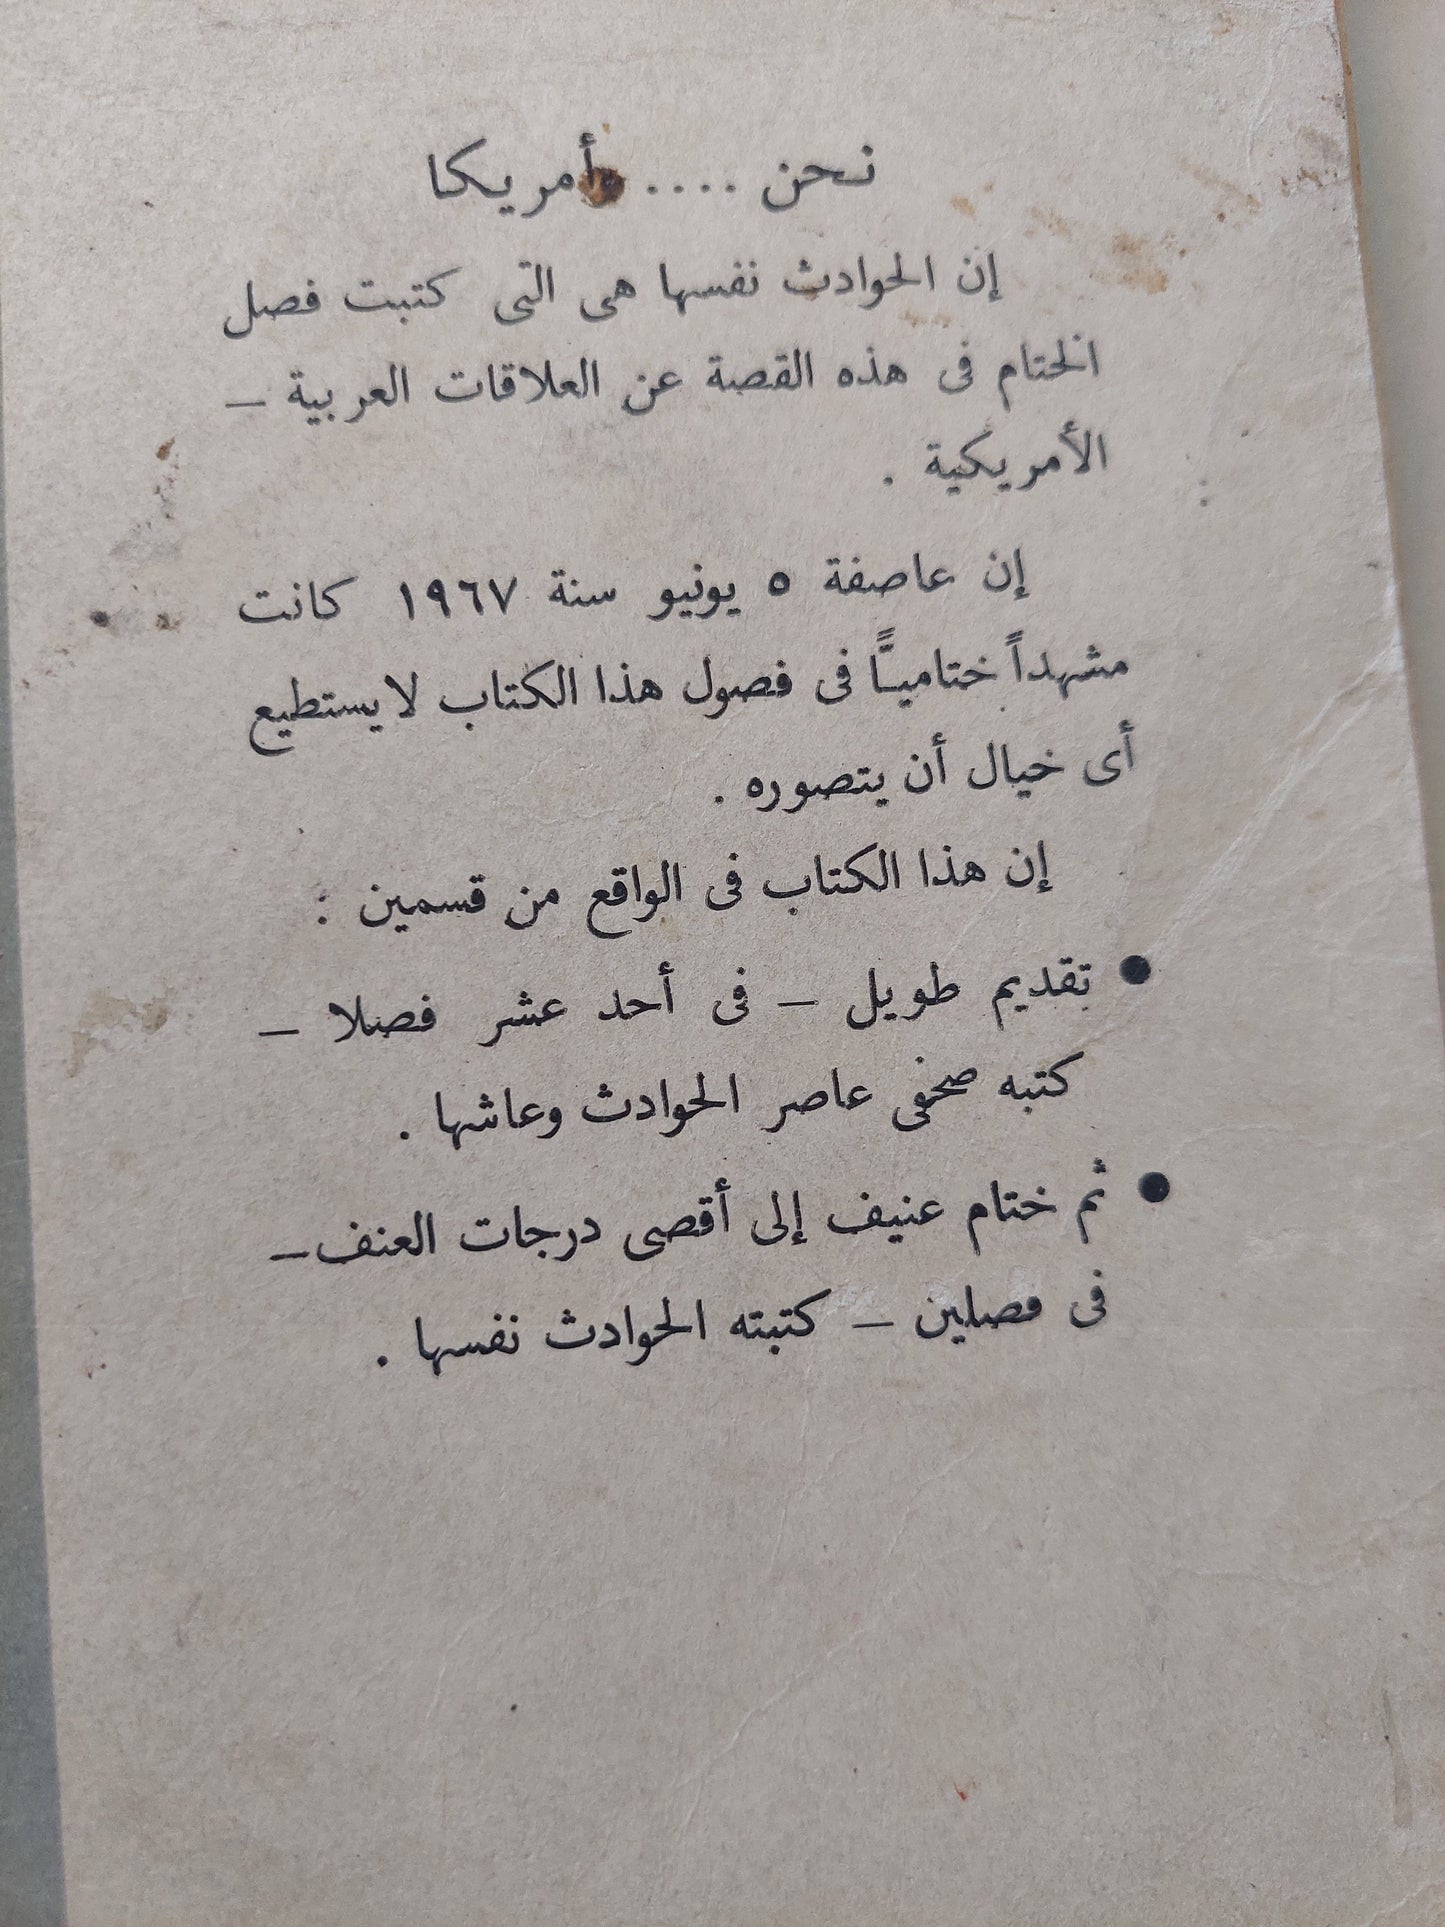 نحن .... وأمريكا
إن الحوادث نفسها هى التى كتبت فصل
الختام فى هذه القصة عن العلاقات العربية –
الأمريكية .
إن عاصفة ٥ يونيو سنة ١٩٦٧ كانت
مشهداً ختاميـًّا فى فصول هذا الكتاب لا يستطيع
أى خيال أن يتصوره .
إن هذا الكتاب فى الواقع من قسمين :
● تقديم طويل – فى أحد عشر فصلا –
كتبه صحفى عاصر الحوادث وعاشها .
● ثم ختام عنيف إلى أقصى درجات العنف –
فى فصلين – كتبته الحوادث نفسها .